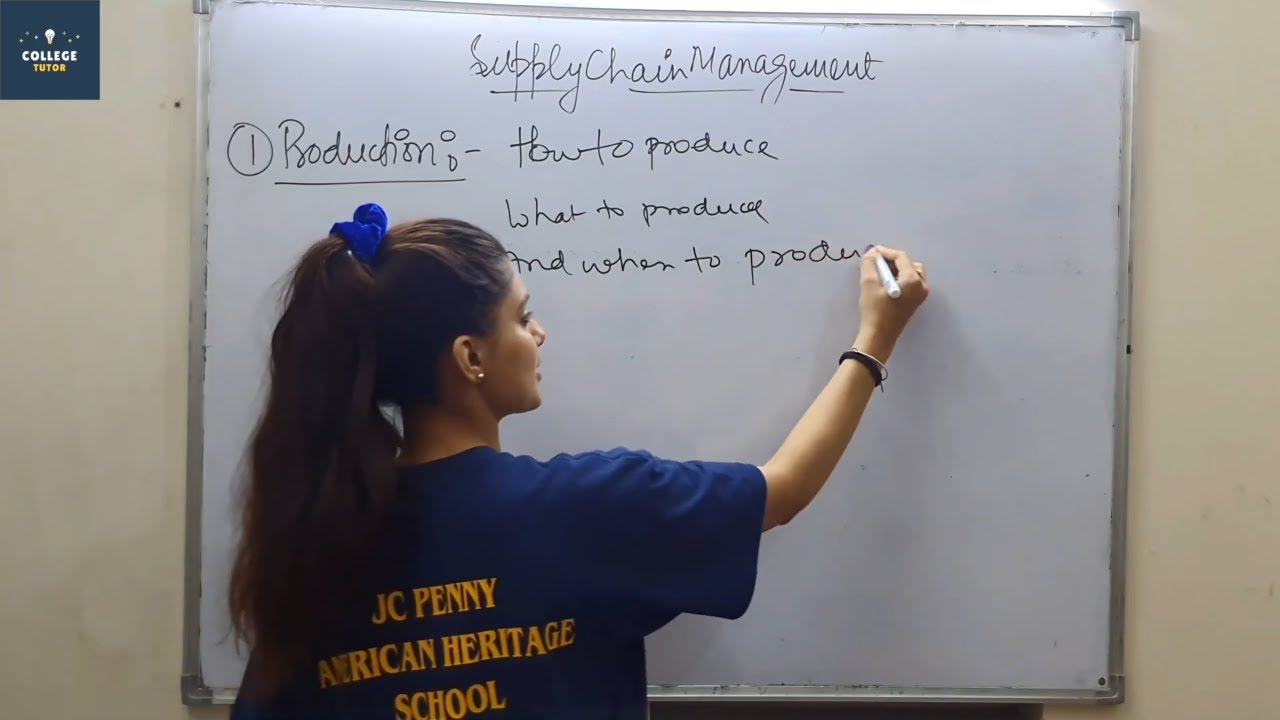 COLLEGE
TUTOR
Supply Chain Management
① Production :- How to produce
What to produce
And when to produ
JC PENNY
AMERICAN HERITAGE
SCHOOL